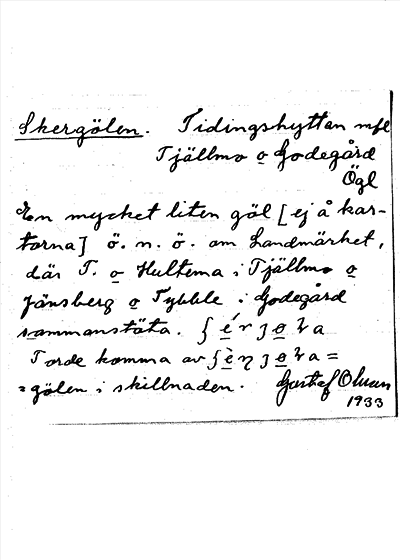 Skergölen. Tidingshyttan mfl
Tjällmo o Godegård
Ögl
En mycket liten göl [ej å kar-
torna] ö. n. ö. om Landmärket,
där T. o Hultema i Tjällmo o
Jönsberg o Tybble i Godegård
sammanstöta.
Torde komma av
=gölen i skillnaden. Gustaf Olsson
1933